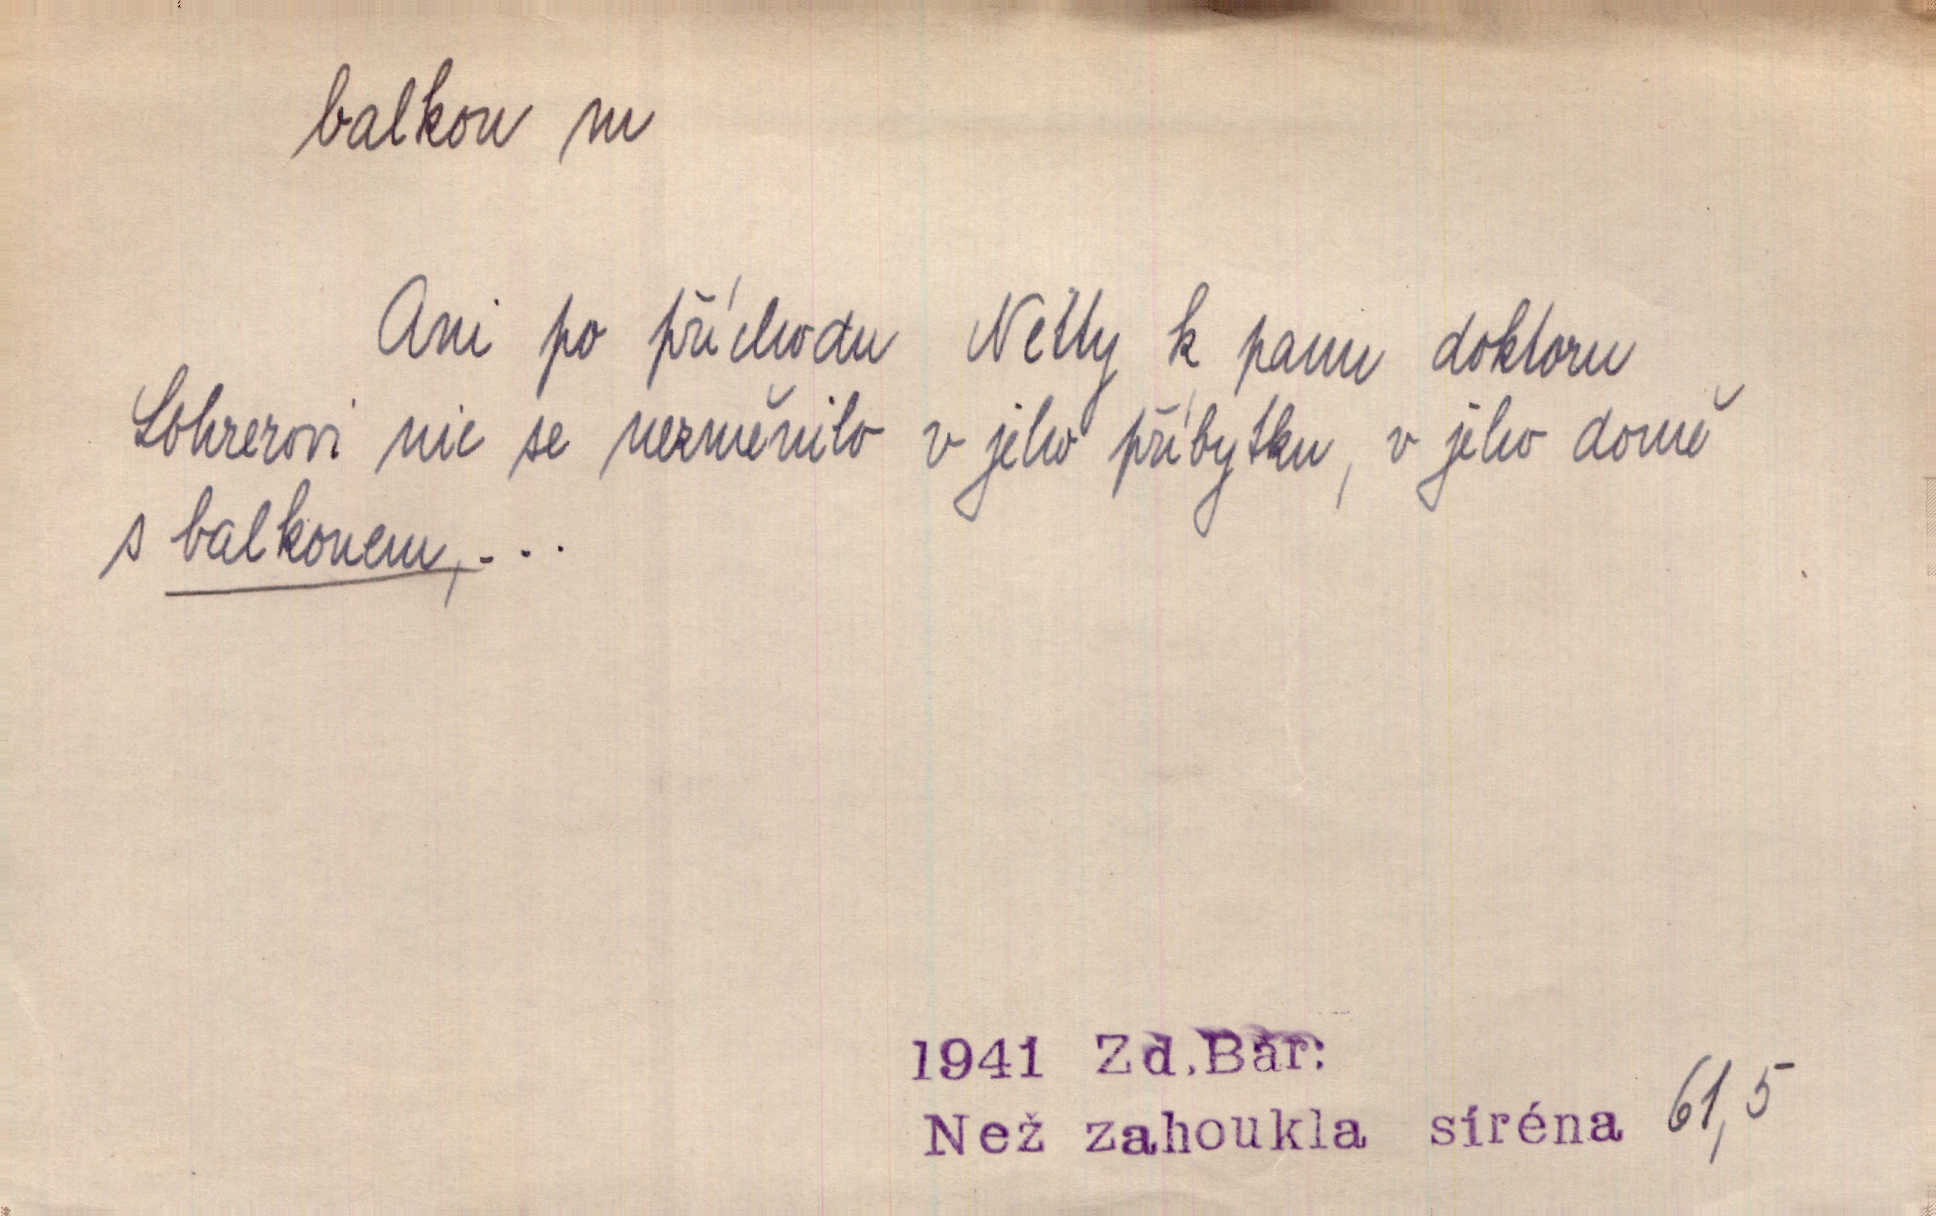 balkon m
Ani po příchodu Netty k panu doktoru
Lohrerovi nic se nezměnilo v jeho příbytku, v jeho domě
s balkonem, ...
1941 Zd.Bár:
Než zahoukla siréna 61,5